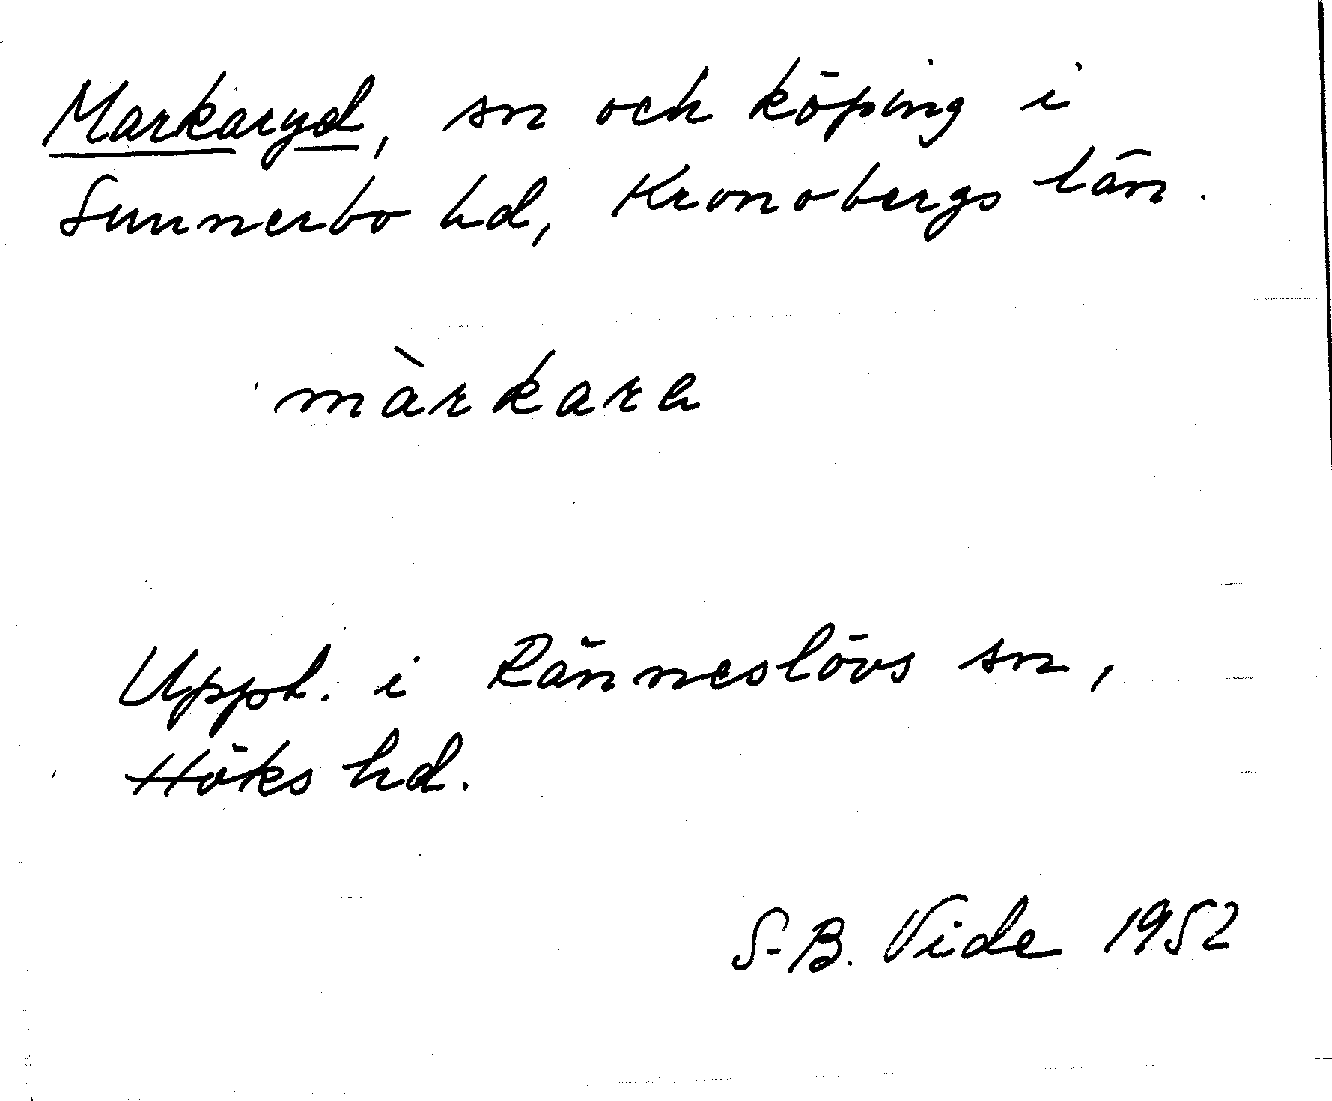 Markaryd, sn och köping i
Sunnerbo hd, Kronobergs län.
màrkara
Upph. i Ränneslövs sn,
Höks hd.
S-B. Vide 1952